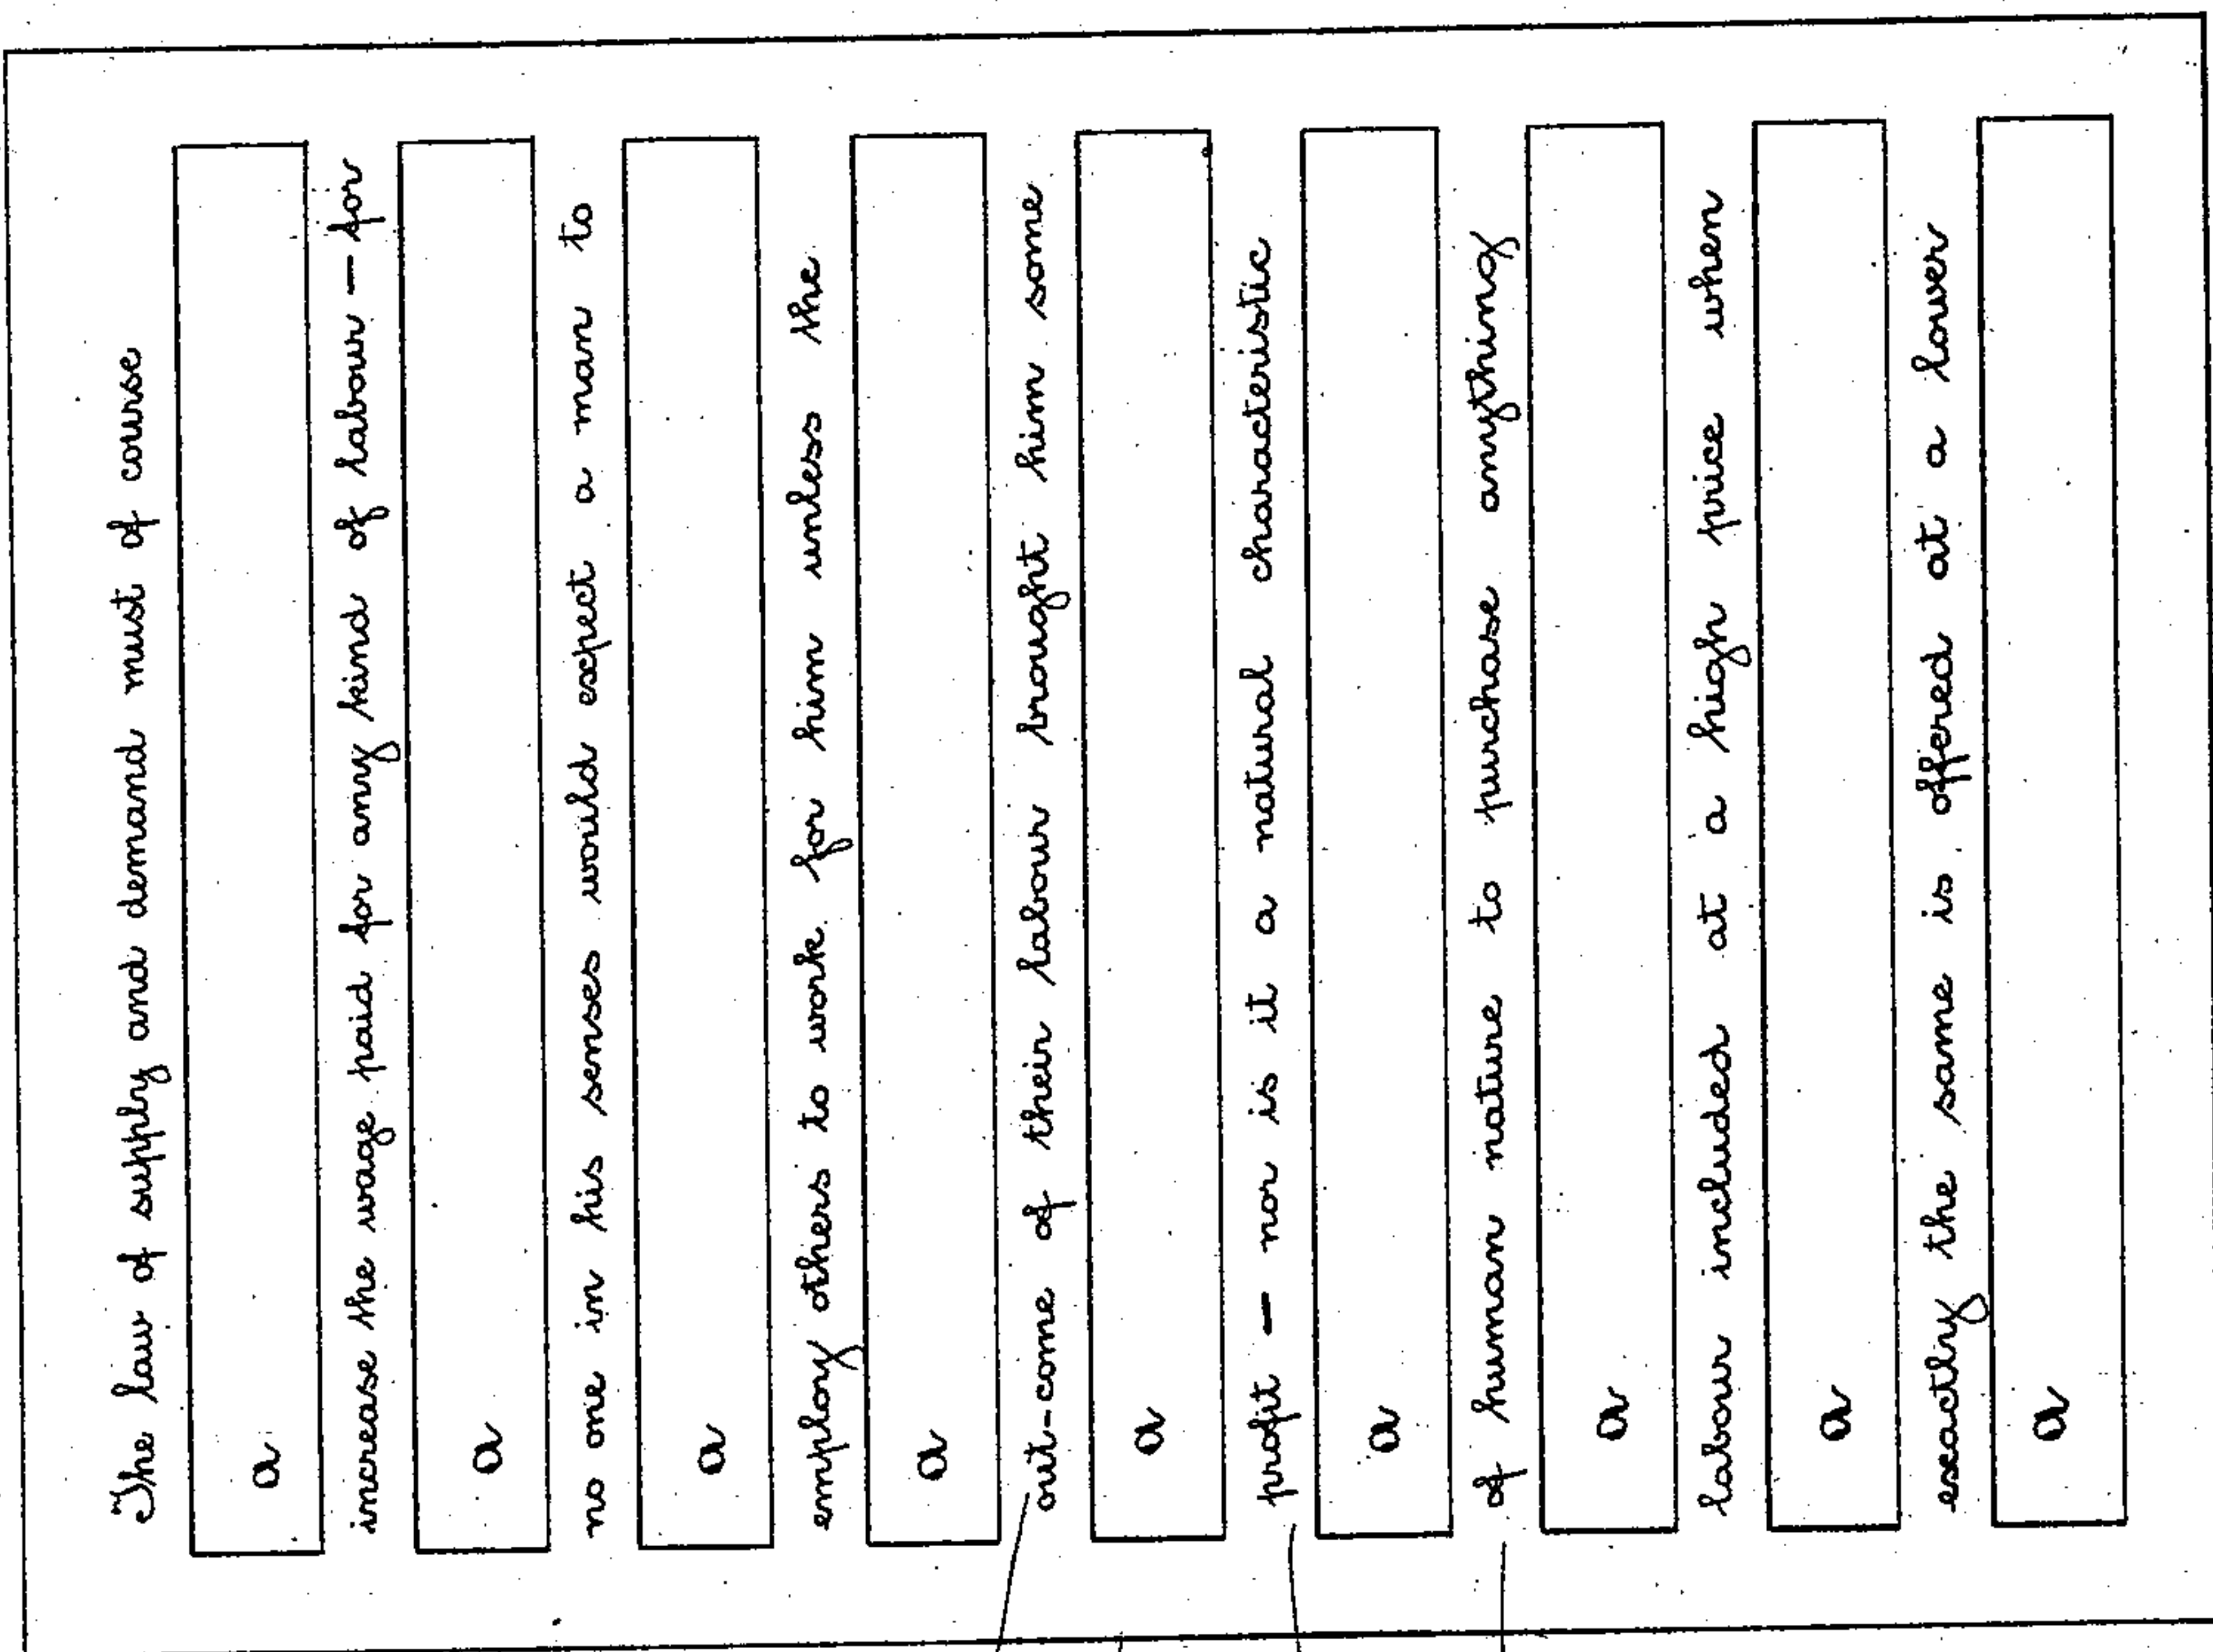 The law of supply and demand must of course
a
increase the wage paid for any kind of labour — for
a
no one in his senses would expect a man to
a
employ others to work for him unless the
a
out-come of their labour brought him some
a
profit — nor is it a natural characteristic
a
of human nature to purchase anything
a
labour included at a high price when
a
exactly the same is offered at a lower
a